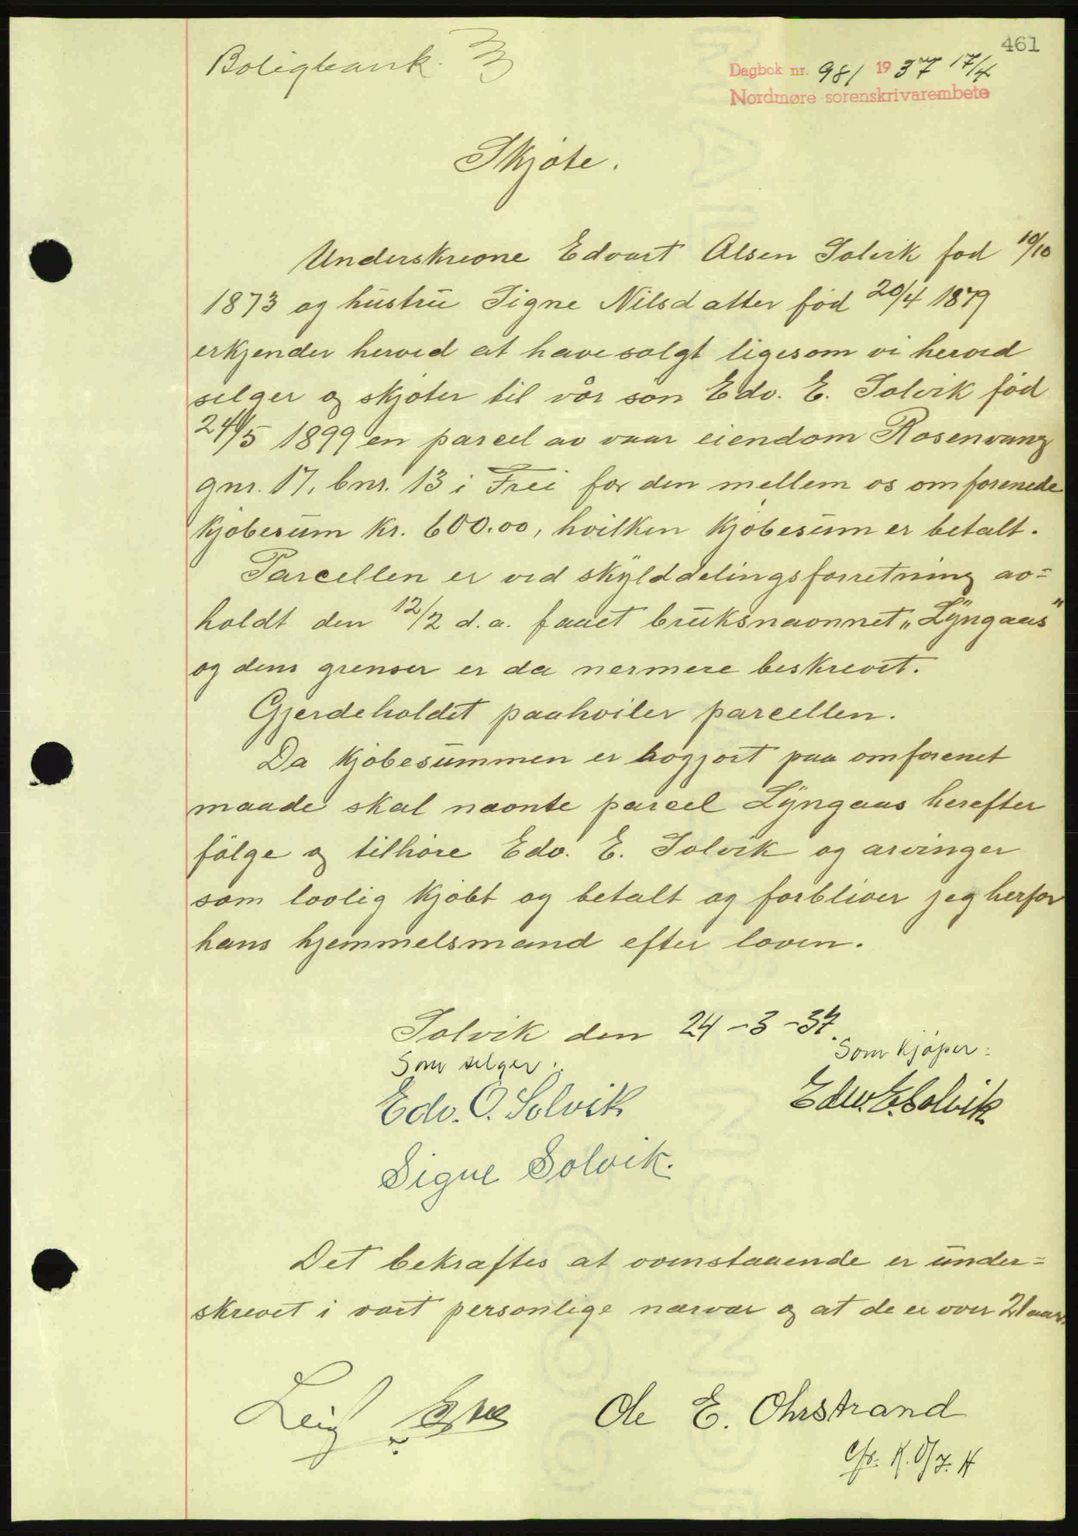 461
Boligbank.
Dagbok nr. 981 1937 17/4
Nordmøre sorenskrivarembete
Skjøte.
Underskrevne Edvart Olsen Solvik fød 10/10
1873 og hustru Signe Nilsdatter fød 20/4 1879
erkjender herved at have solgt ligesom vi herved
selger og skjøter til vår søn Edv. E. Solvik fød
24/5 1899 en parcel av vaar eiendom Rosenvang
gnr. 17, bnr. 13 i Frei for den mellem os omforenede
kjøbesum kr. 600.00, hvilken kjøbesum er betalt.
Parcellen er ved skylddelingsforretning av=
holdt den 12/2 d.a. faaet bruksnavnet „Lyngaas"
og dens grenser er da nermere beskrevet.
Gjerdeholdet paahviler parcellen.
Da kjøbesummen er avgjort paa omforenet
maade skal nævnte parcel Lyngaas herefter
følge og tilhøre Edv. E. Solvik og arvinger
som lovlig kjøbt og betalt og forbliver jeg herfor
hans hjemmelsmand efter loven.
Solvik den 24-3-37.
Som selger: Som kjøper:
Edv. O. Solvik Edv. E. Solvik
Signe Solvik.
Det bekræftes at ovenstaaende er under=
skrevet i vort personlige nærvær og at de er over 21 aar.
Leif Ole E. Ohrstrand